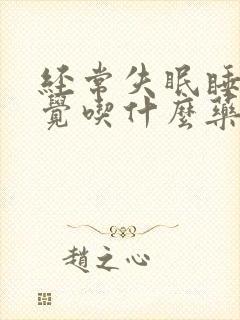 經常失眠睡
覺喫什麼藥
趙之心